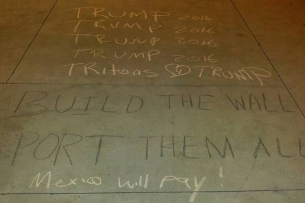 TRUMP 2016
TRUMP 2016
TRUMP 2016
TRUMP 2016
TRitons TRUMP
BUILD THE WALL
PORT THEM ALL
Mexico will pay!